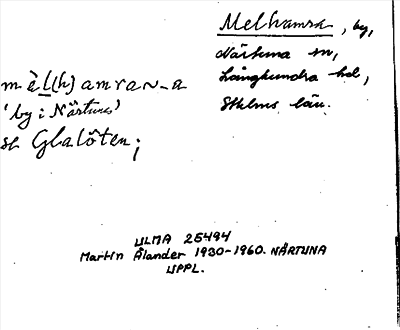 Melhamra, by,
Närtuna sn,
Långhundra hd,
Sthlms län.
mèl(h)amran-a
'by i Närtuna'
se Glalöten;
ULMA 25494
Martin Ålander 1930-1960. NÄRTUNA
UPPL.